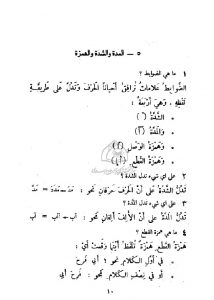 ٥ – المدة والشدة والهمزة
١ ما هي الضوابط ؟
الضَّوابِطُ عَلاماتٌ تُرافِقُ أَحياناً الحَرْفَ وَتَدُلُّ عَلى طَرِيقَةِ
لَفْظِهِ . وَهِيَ أَرْبَعَةٌ :
الشَّدَّةُ
وَالمَدَّةُ
وَهَمْزَةُ الوَصْلِ
وَهَمْزَةُ القَطْعِ
٢ على اي شيء تدل الشدة ؟
تَدُلُّ الشَّدَّةُ عَلى أَنَّ الحَرْفَ حَرْفانِ نَحْوَ : مَدْدَ – مَدَّ
٣ على اي شيء تدل المدة ؟
تَدُلُّ المَدَّةُ عَلى أَنَّ الأَلِفَ أَلِفانِ نَحْوَ : أاب – آب
٤ ما هي همزة القطع ؟
هَمْزَةُ القَطْعِ هَمْزَةٌ تُلْفَظُ أَيْنَما وَقَعَتْ أَيْ :
في أَوَّلِ الكَلامِ نَحْوَ : أَبي فَرِحَ
أَوْ في وَسَطِ الكَلامِ نَحْوَ : فَرِحَ أَبي
١٠